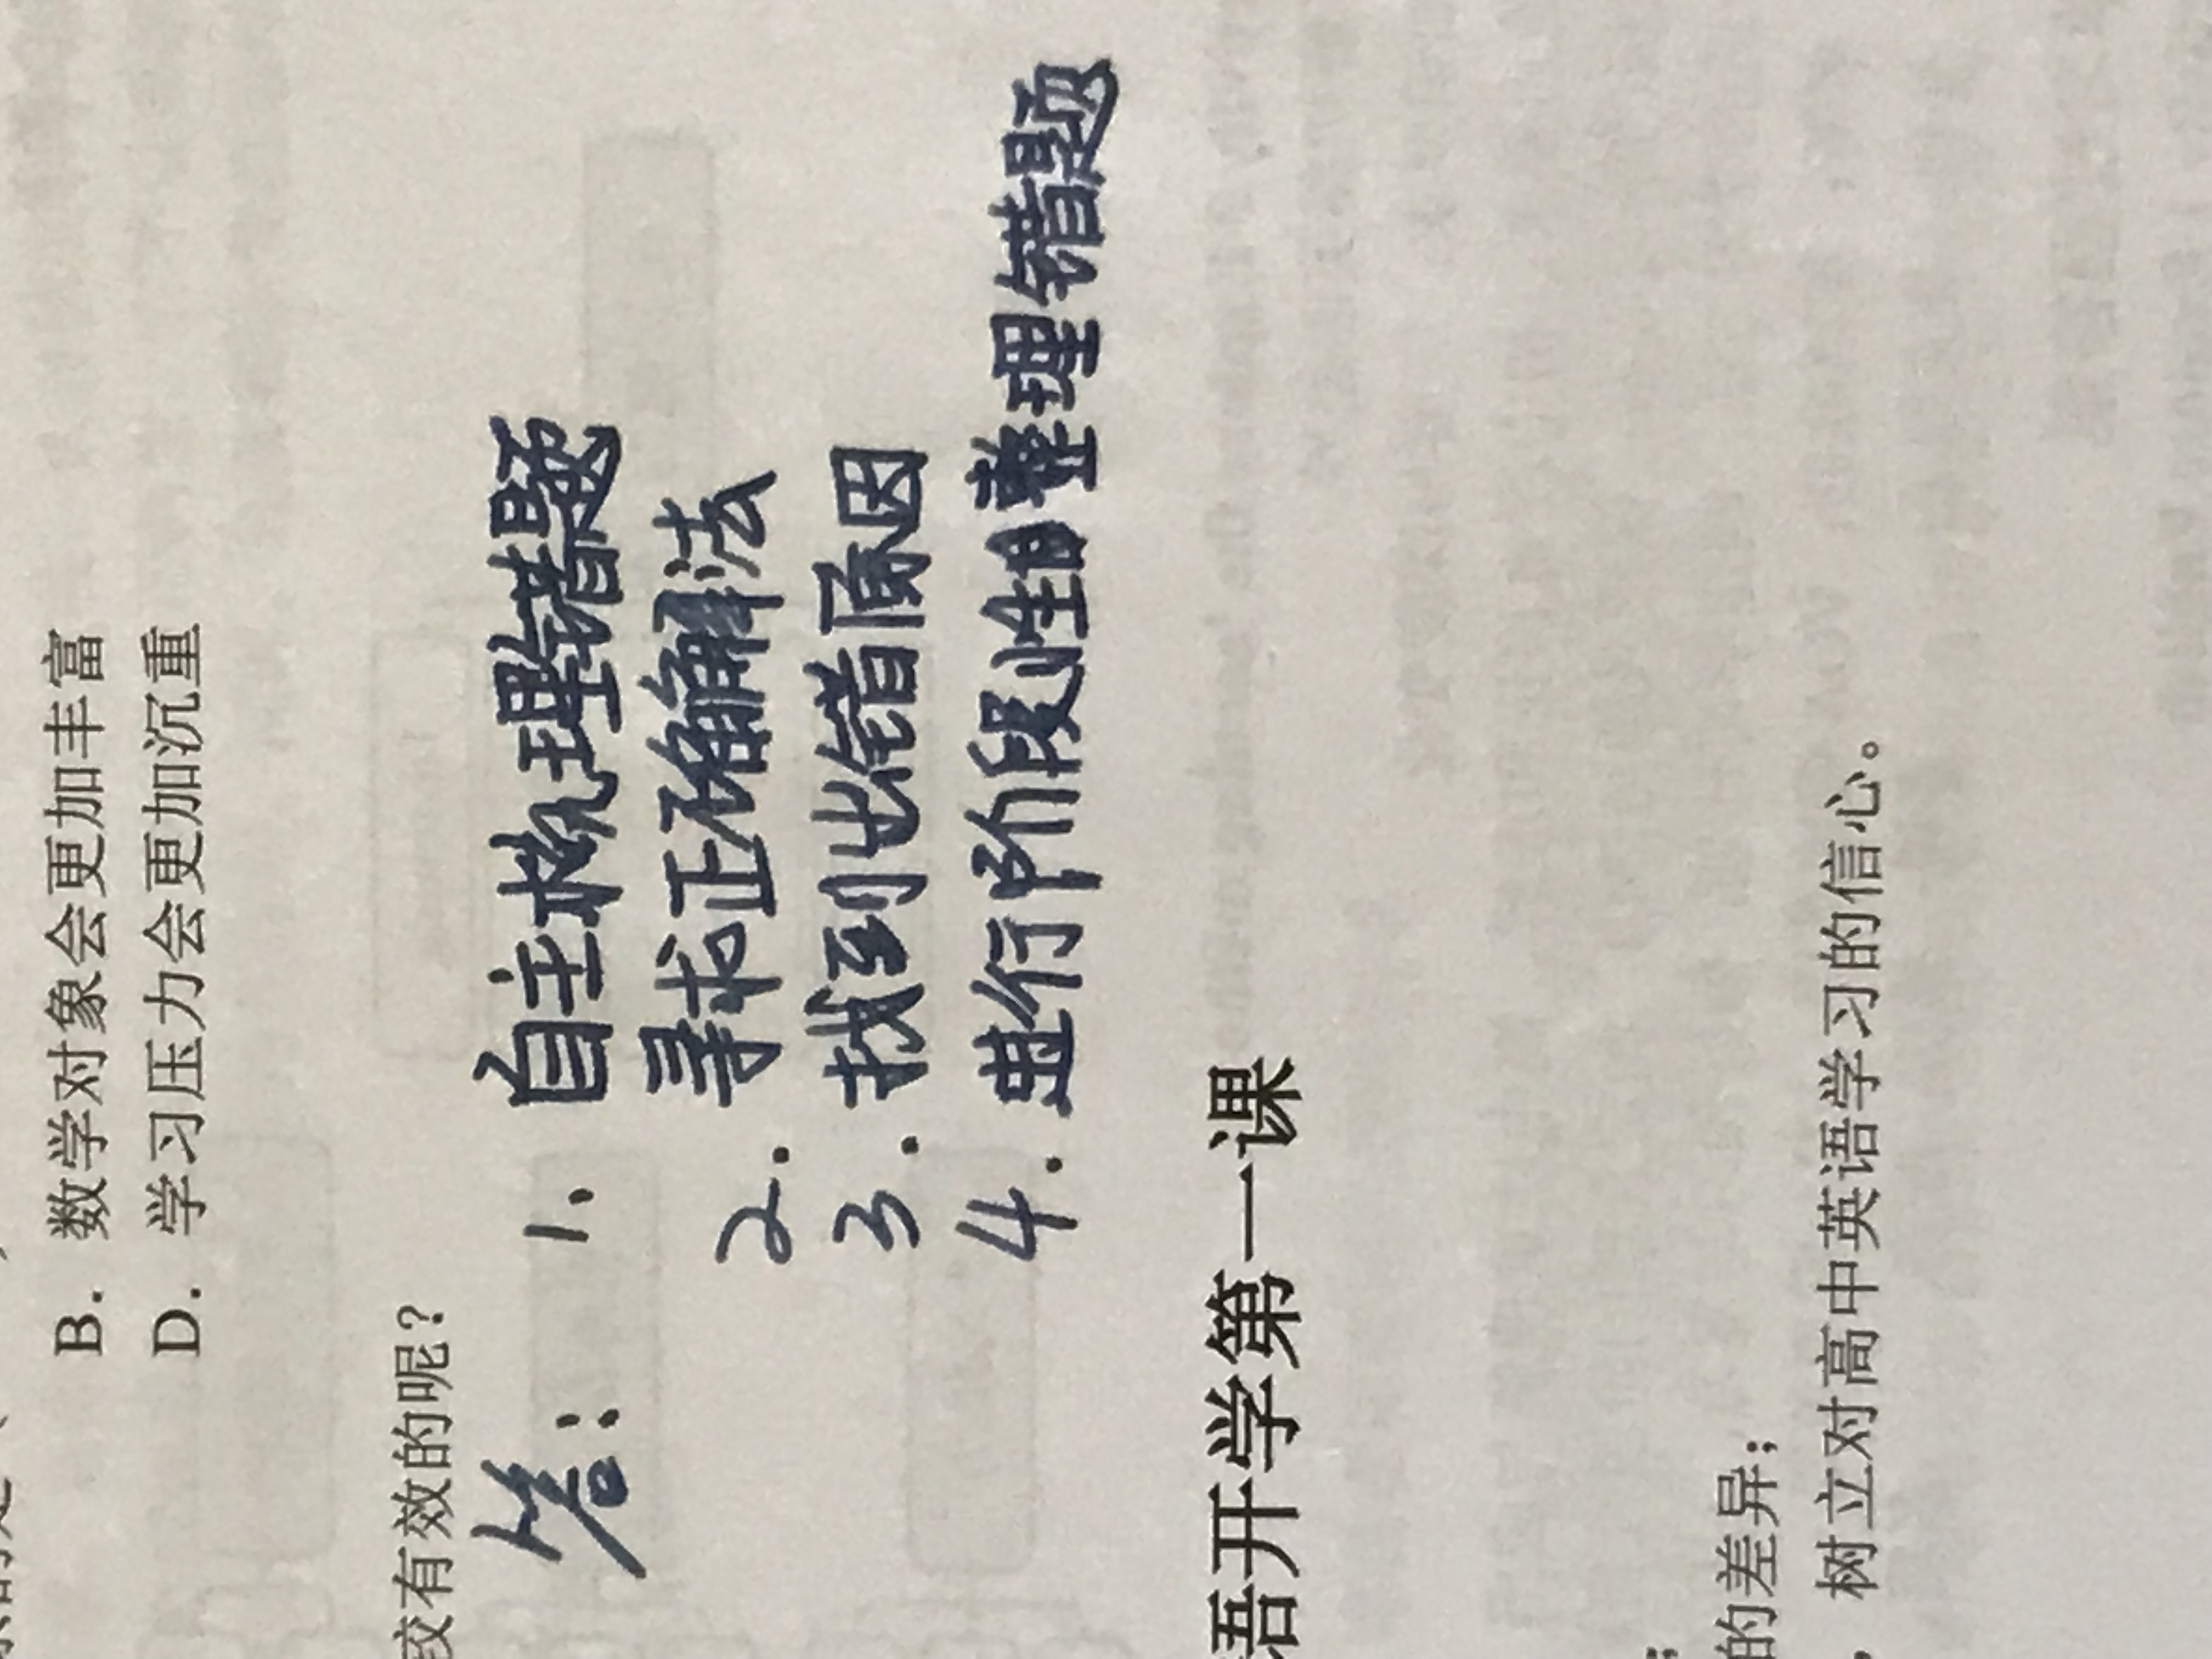 B. 数学对象会更加丰富
D. 学习压力会更加沉重
较有效的呢?
答: 1、自主梳理错题
2. 寻求正确解法
3. 找到出错原因
4. 进行阶段性整理错题
语开学第一课
的差异;
,树立对高中英语学习的信心。